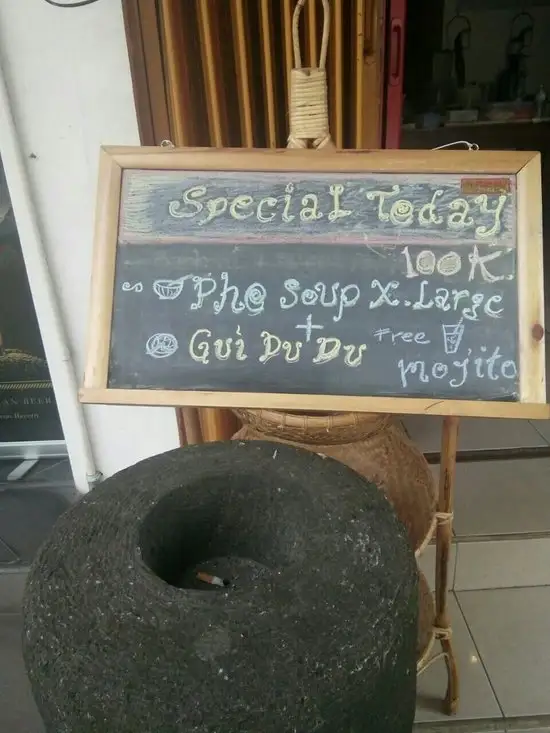 Special Today
100K.
Pho Soup X. Large
+
Gui Du Du
Free
mojito
AN BEER